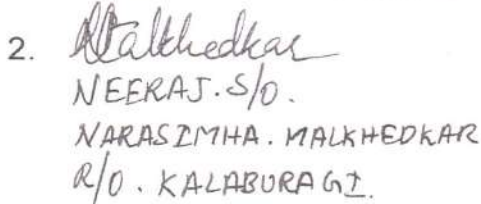 2. NMalkhedkar
NEERAJ. S/O.
NARASIMHA. MALKHEDKAR
R/O. KALABURAGI.